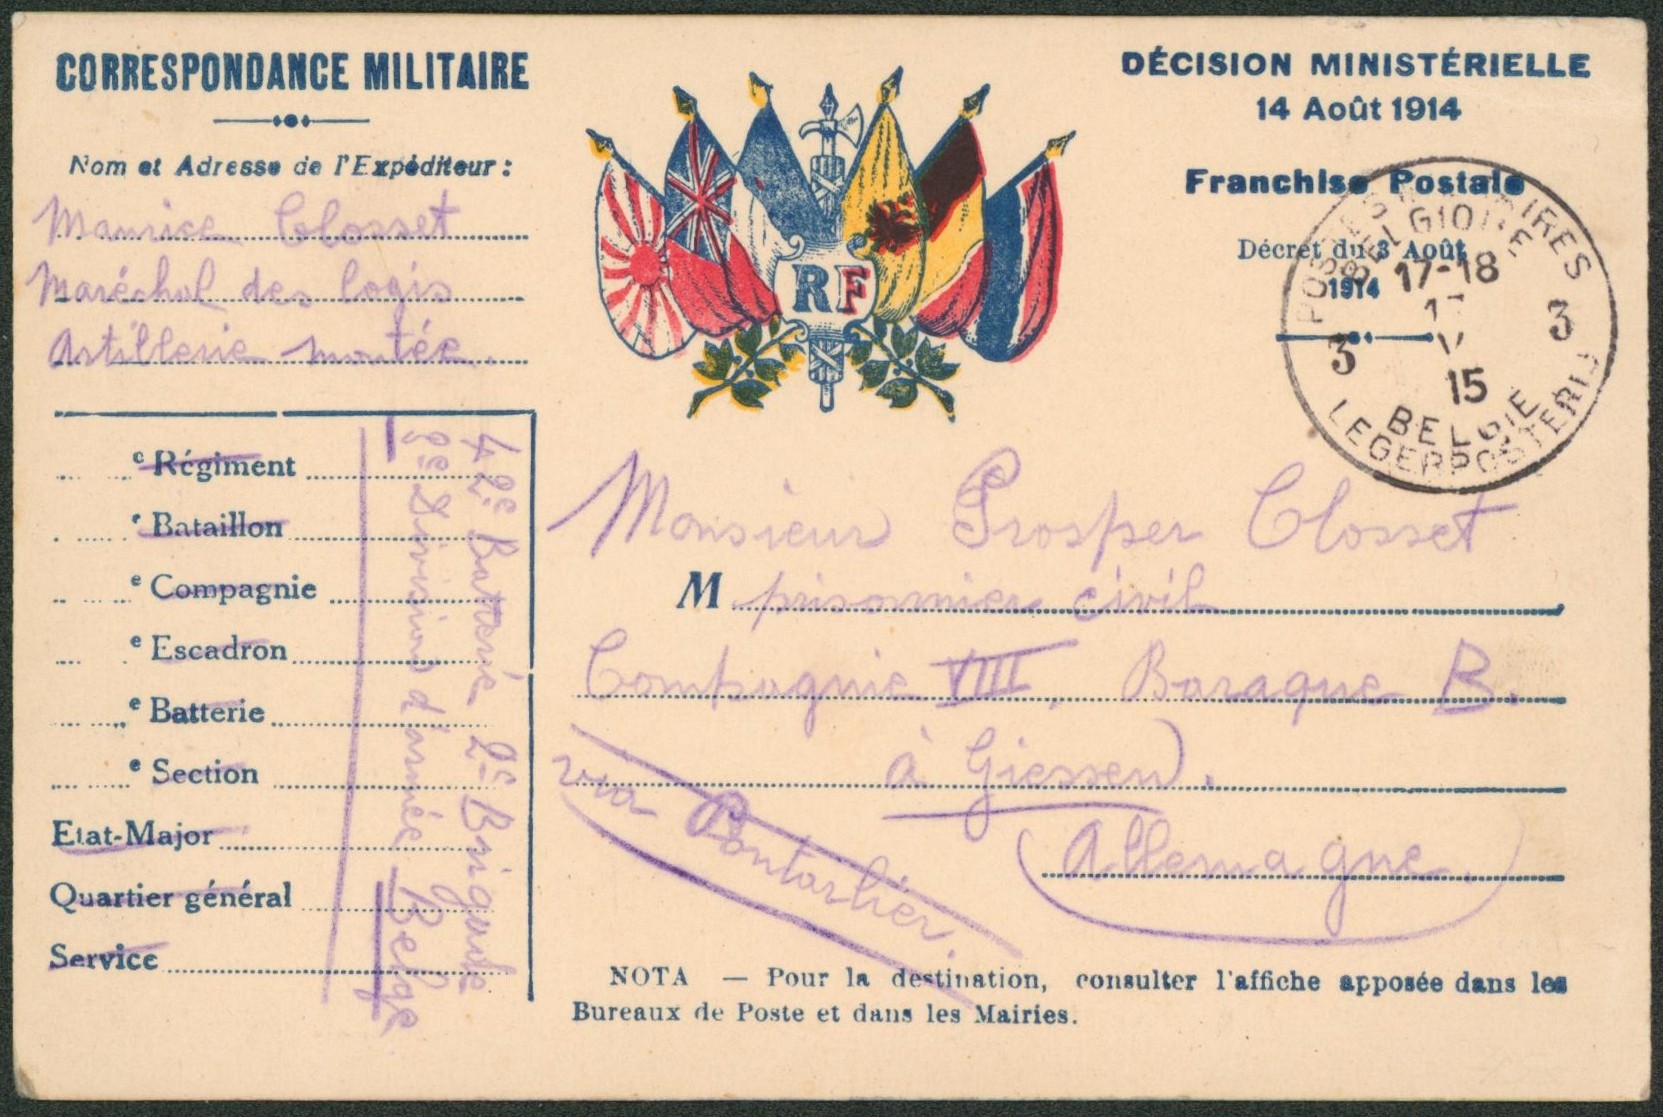 CORRESPONDANCE MILITAIRE
Nom et Adresse de l'Expéditeur :
Maurice Closset
Maréchal des logis
Artillerie montée.
RF
DÉCISION MINISTÉRIELLE
14 Août 1914
Franchise Postale
Décret du 3 Août
1914
POSTES MILITAIRES
BELGIQUE
17-18
15
3 3
BELGIE
LEGERPOSTERIJ
e Régiment
e Bataillon
e Compagnie
e Escadron
e Batterie
e Section
Etat-Major
Quartier général
Service
42e Batterie 2e Brigade
2e Division d'armée Belge
Monsieur Prosper Closset
M prisonnier civil
Compagnie VIII, Baraque B.
à Giessen.
Allemagne.
via Pontarlier.
NOTA — Pour la destination, consulter l'affiche apposée dans les
Bureaux de Poste et dans les Mairies.